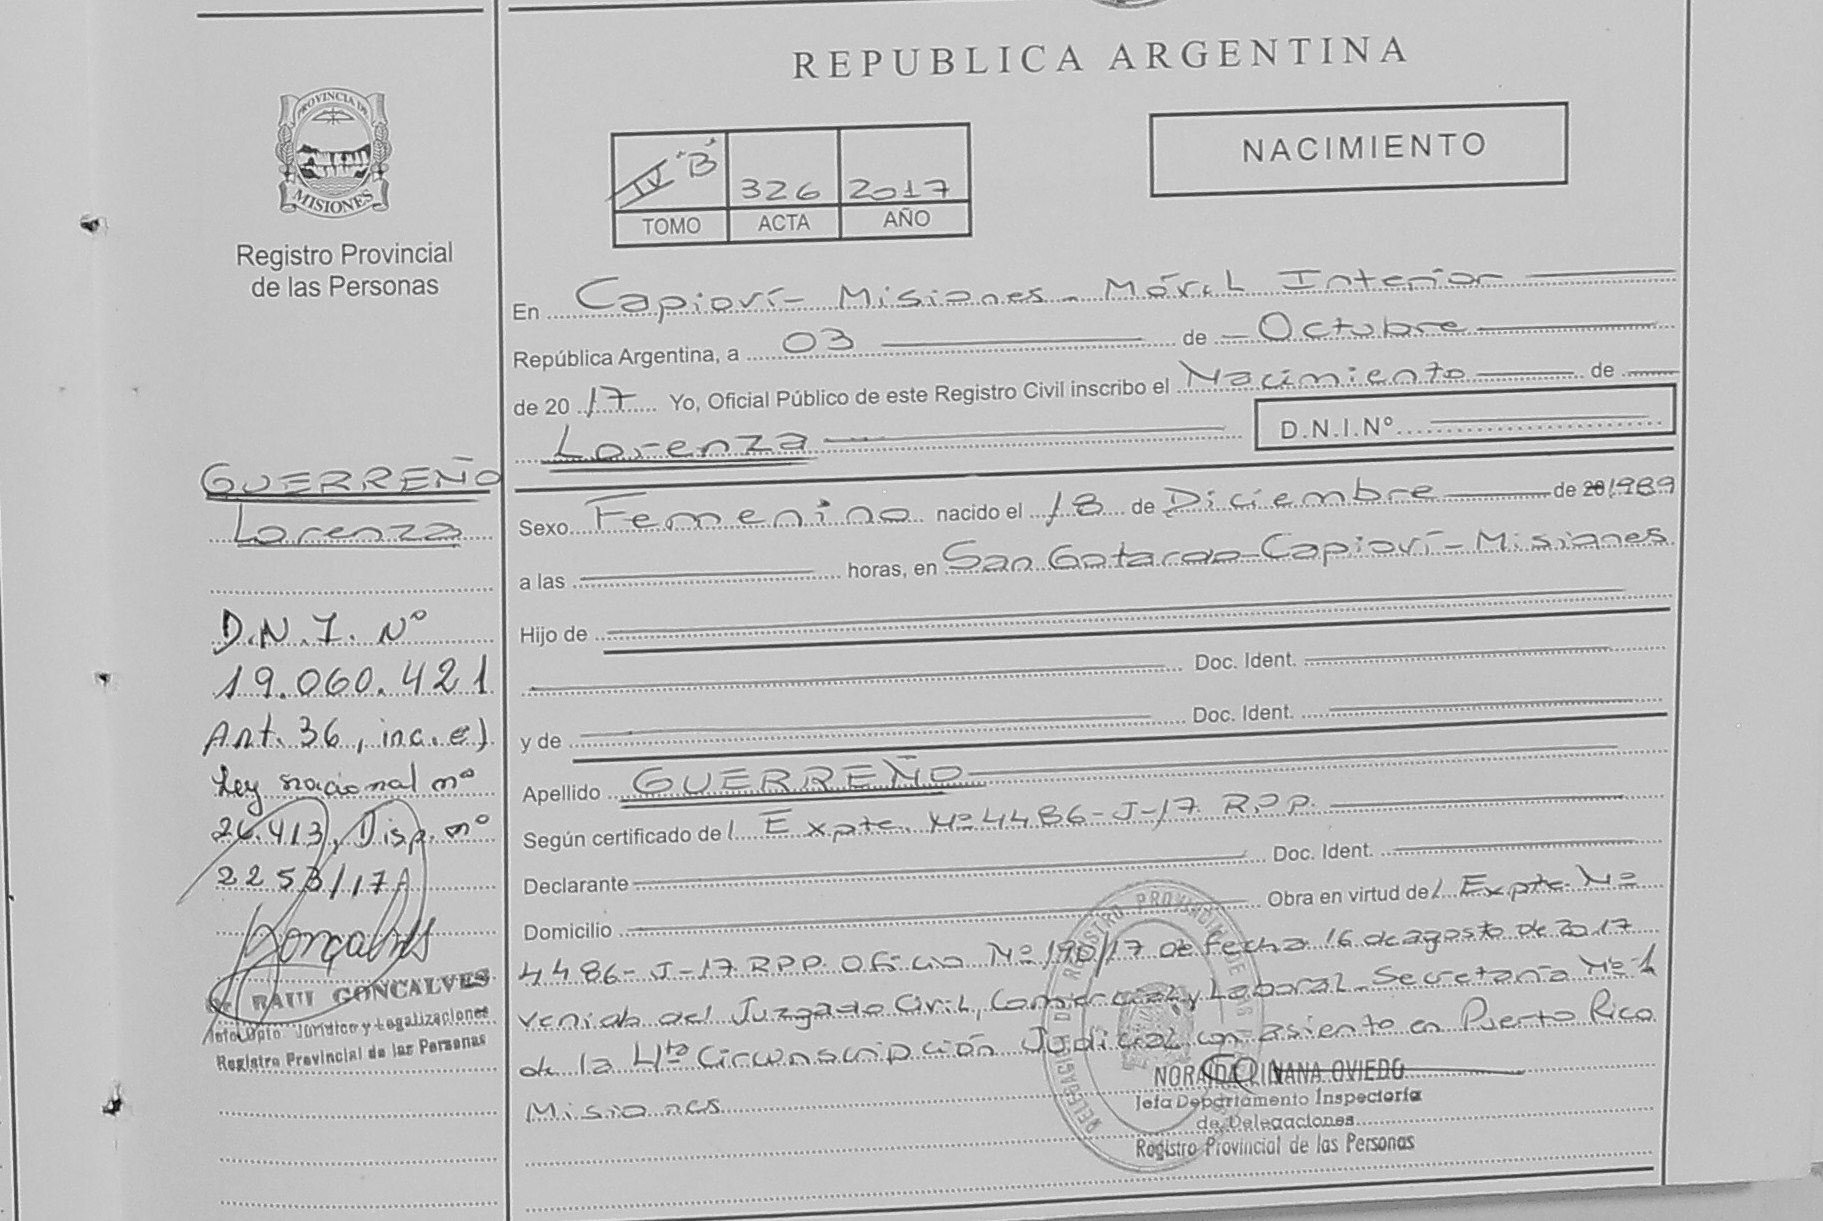 REPUBLICA ARGENTINA
NACIMIENTO
IV "B" 326 2017
TOMO ACTA AÑO
PROVINCIA DE
MISIONES
Registro Provincial
de las Personas
GUERREÑO
Lorenza
D.N.I. Nº
19.060.421
Art. 36, inc. e)
Ley nacional nº
26.413, Disp. nº
2253/17
RAUL GONCALVES
Jefe Dpto. Jurídico y Legalizaciones
Registro Provincial de las Personas
En Capioví - Misiones - Móvil Interior
República Argentina, a 03 de Octubre
de 20 17 Yo, Oficial Público de este Registro Civil inscribo el Nacimiento de
Lorenza D.N.I.Nº
Sexo Femenino nacido el 18 de Diciembre de 20 1989
a las horas, en San Gotardo - Capioví - Misiones
Hijo de
Doc. Ident.
y de Doc. Ident.
Apellido GUERREÑO
Según certificado de / Expte. Nº 4486-J-17 R.P.P.
Declarante Doc. Ident.
Domicilio Obra en virtud de / Expte. Nº
4486-J-17 RPP Oficio Nº 190/17 de fecha 16 de agosto de 2017
venido del Juzgado Civil, Comercial y Laboral - Secretaría Nº 1
de la 4ta Circunscripción Judicial con asiento en Puerto Rico
Misiones
OVIEDO
Jefa Departamento Inspectoría
de Delegaciones
Registro Provincial de las Personas